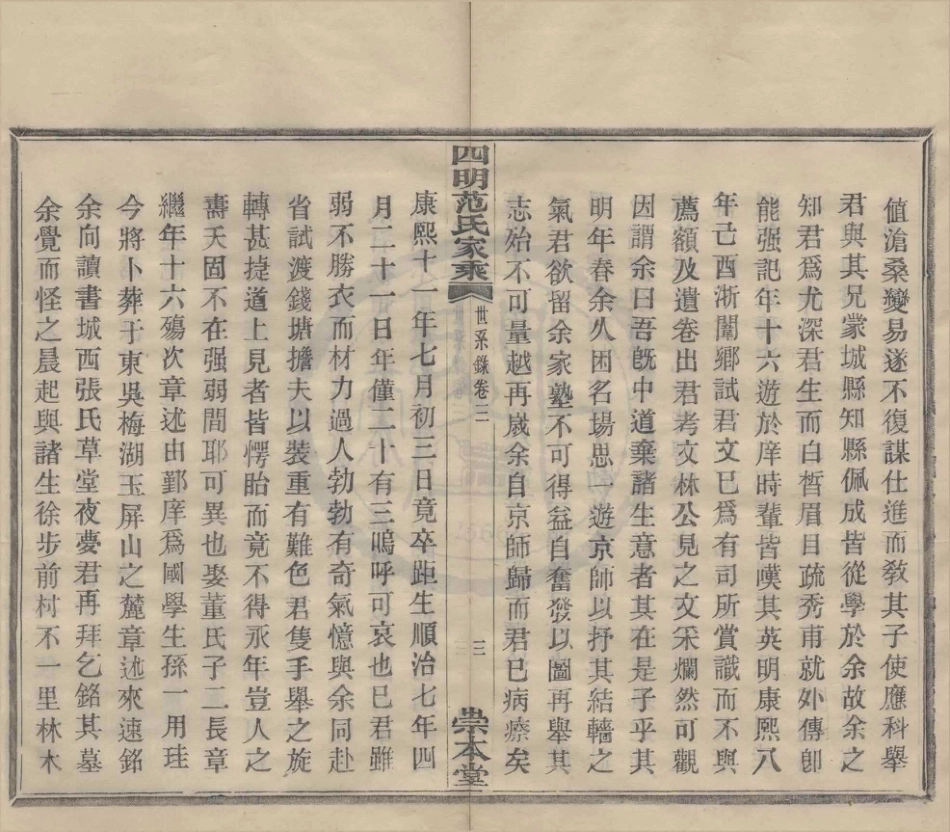 値滄桑變易遂不復謀仕進而敎其子使應科舉
君與其兄蒙城縣知縣佩成皆從學於余故余之
知君爲尤深君生而白皙眉目疏秀甫就外傳卽
能强記年十六遊於庠時輩皆嘆其英明康熙八
年己酉浙闈鄉試君文已爲有司所賞識而不與
薦額及遺卷出君考文林公見之文采爛然可觀
因謂余曰吾旣中道棄諸生意者其在是子乎其
明年春余久困名場思一遊京師以抒其結轖之
氣君欲留余家塾不可得益自奮發以圖再舉其
志始不可量越再歲余自京師歸而君已病瘵矣
四明范氏家乘
世系錄卷三
三
崇本堂
康熙十一年七月初三日竟卒距生順治七年四
月二十一日年僅二十有三嗚呼可哀也已君雖
弱不勝衣而材力過人勃勃有奇氣憶與余同赴
省試渡錢塘擔夫以裝重有難色君隻手舉之旋
轉甚㨗道上見者皆愕眙而竟不得永年豈人之
壽夭固不在强弱間耶可異也娶董氏子二長章
繼年十六殤次章述由鄞庠爲國學生孫一用珪
今將卜葬于東吳梅湖玉屏山之麓章述來速銘
余向讀書城西張氏草堂夜夢君再拜乞銘其墓
余覺而怪之晨起與諸生徐步前村不一里林木